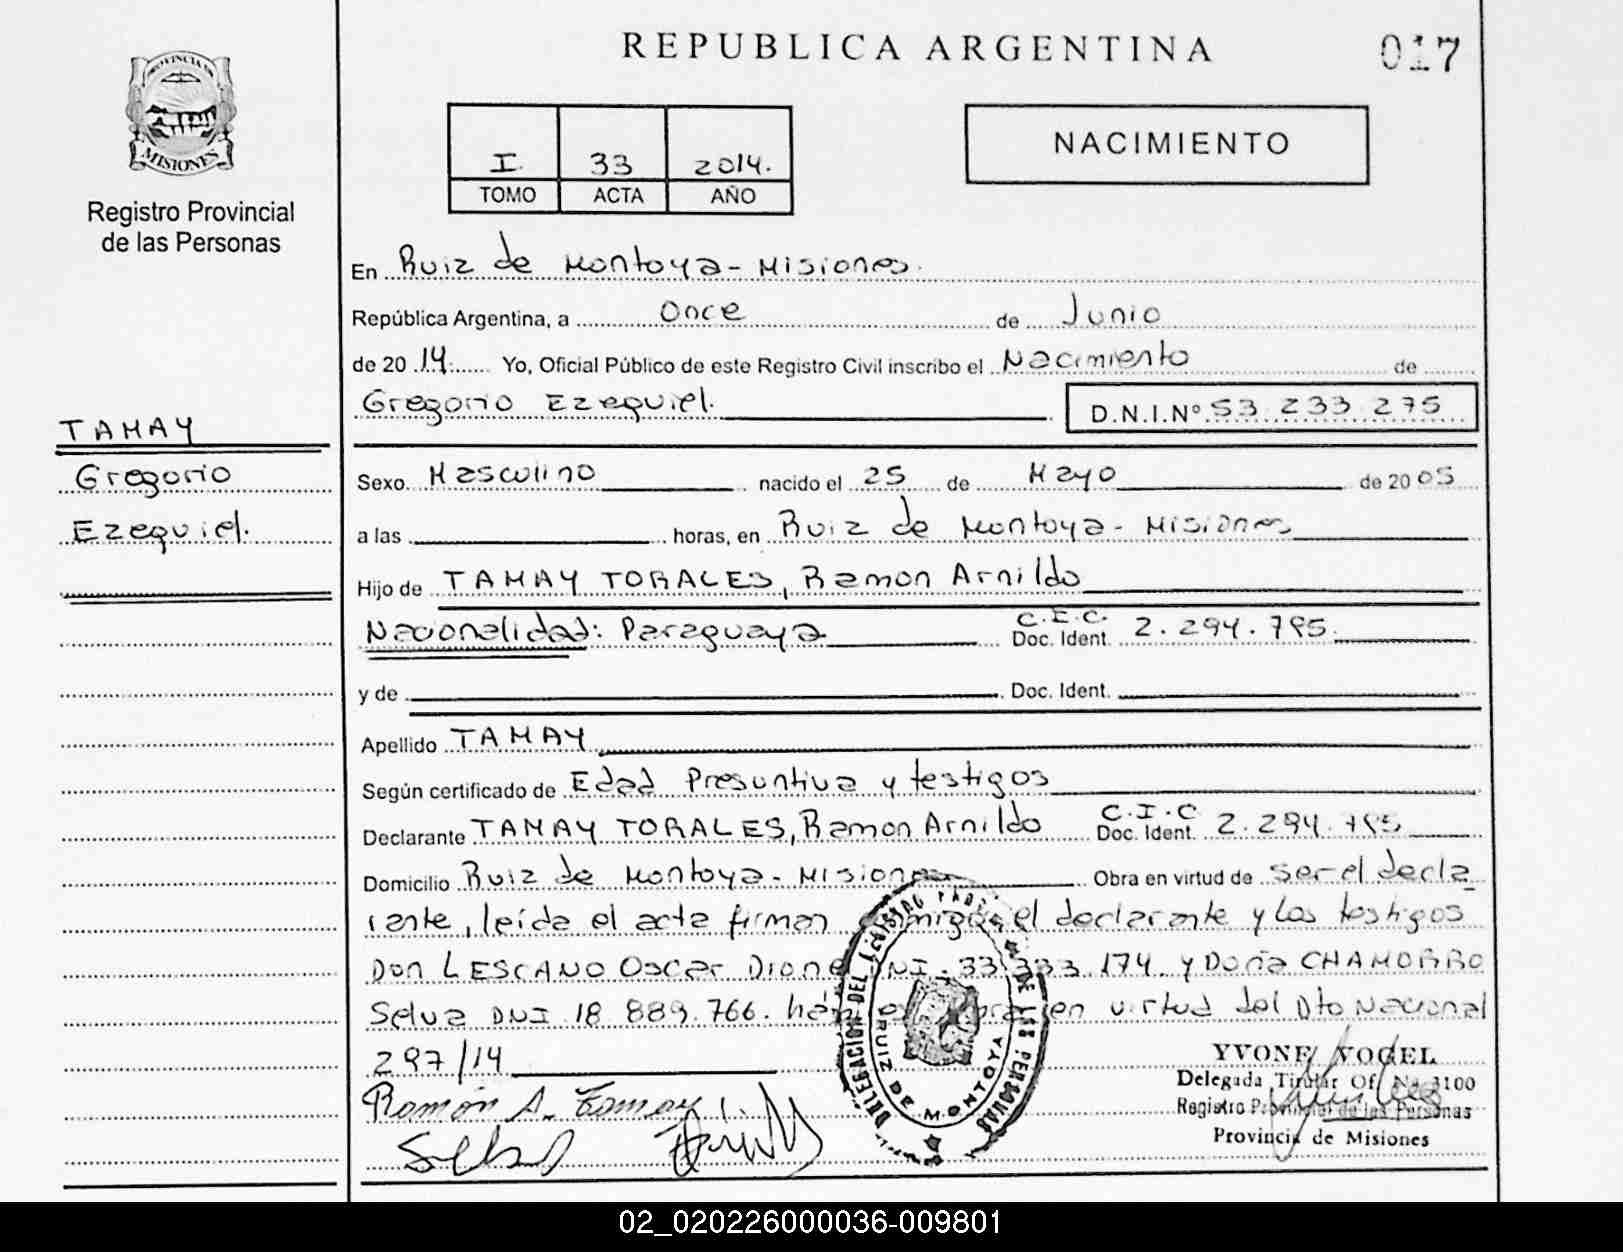 REPUBLICA ARGENTINA
017
PROVINCIA DE
MISIONES
Registro Provincial
de las Personas
I. 33 2014.
TOMO ACTA AÑO
NACIMIENTO
En Ruiz de Montoya - Misiones.
República Argentina, a Once de Junio
de 20 14. Yo, Oficial Público de este Registro Civil inscribo el Nacimiento de
Gregorio Ezequiel. D.N.I.Nº 53.233.275
TAMAY
Gregorio
Ezequiel.
Sexo Masculino nacido el 25 de Mayo de 20 05
a las horas, en Ruiz de Montoya - Misiones
Hijo de TAMAY TORALES, Ramon Arnildo
Nacionalidad: Paraguaya C.I.C. Doc. Ident. 2.294.795
y de Doc. Ident.
Apellido TAMAY
Según certificado de Edad Presuntiva y testigos
Declarante TAMAY TORALES, Ramon Arnildo C.I.C Doc. Ident. 2.294.795
Domicilio Ruiz de Montoya - Misiones Obra en virtud de ser el decla
rante, leída el acta firman el declarante y los testigos
Don LESCANO Oscar DNI. 33.333.174 y Doña CHAMORRO
Selva DNI 18.889.766. en virtud del Dto Nacional
297/14
Ramón A. Tamay
DELEGACION DEL REGISTRO PROV. DE LAS PERSONAS
RUIZ DE MONTOYA
YVONE VOGEL
Delegada Titular Of. Nº 3100
Registro Provincial de las Personas
Provincia de Misiones
02_020226000036-009801